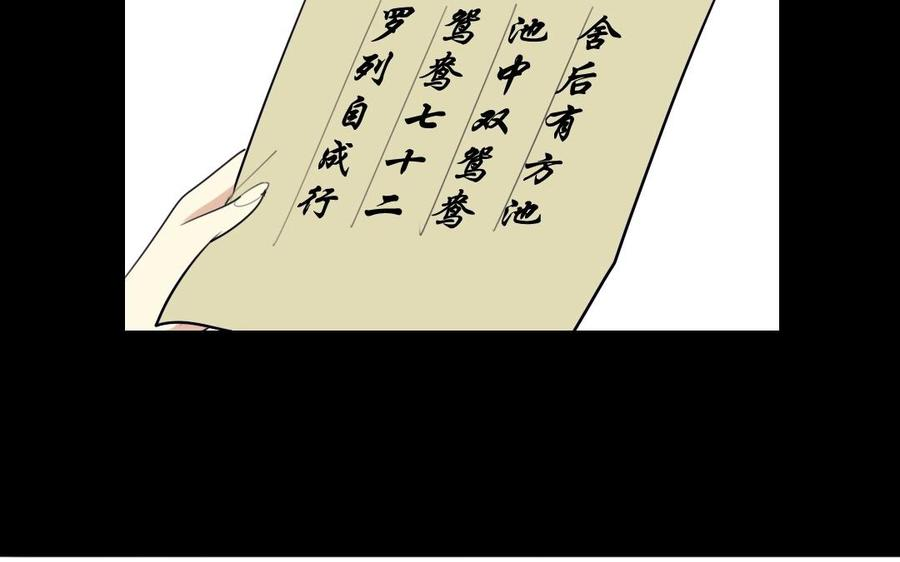 舍后有方池
池中双鸳鸯
鸳鸯七十二
罗列自成行